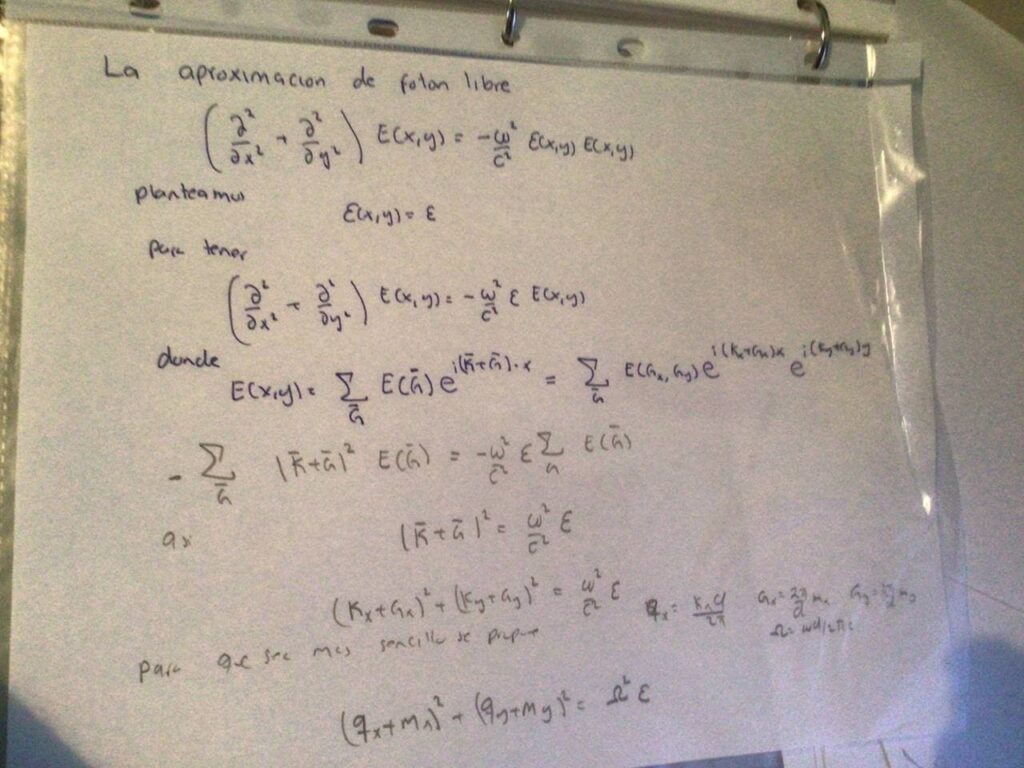 La aproximacion de foton libre
(∂²/∂x² + ∂²/∂y²) E(x,y) = -ω²/c² ε(x,y) E(x,y)
planteamos
ε(x,y) = ε
para tener
(∂²/∂x² + ∂²/∂y²) E(x,y) = -ω²/c² ε E(x,y)
donde
E(x,y) = Σ_Ḡ E(Ḡ) e^{i(K̄+Ḡ)·x} = Σ_Ḡ E(Gx,Gy) e^{i(Kx+Gx)x} e^{i(Ky+Gy)y}
- Σ_Ḡ |K̄+Ḡ|² E(Ḡ) = -ω²/c² ε Σ_G E(Ḡ)
|K̄+Ḡ|² = ω²/c² ε
(Kx+Gx)² + (Ky+Gy)² = ω²/c² ε qx = Kxd/2π Gx = 2π/d mx
Ω = ωd/2πc
para que sea mas sencillo se propone
(qx+mx)² + (qy+my)² = Ω² ε